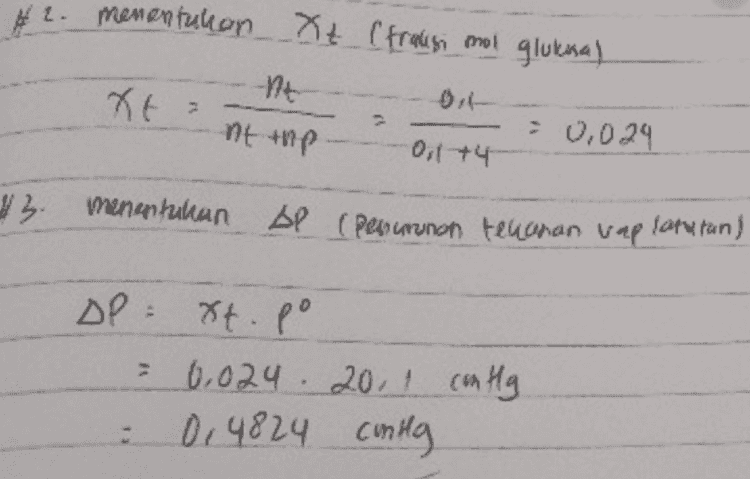 #2. menentukan Xt (fraksi mol glukosa)
Xt = nt / nt + np = 0,1 / 0,1 + 4 = 0,024
#3. menentukan ΔP (penurunan tekanan uap larutan)
ΔP = Xt . P°
= 0,024 . 20,1 cmHg
= 0,4824 cmHg